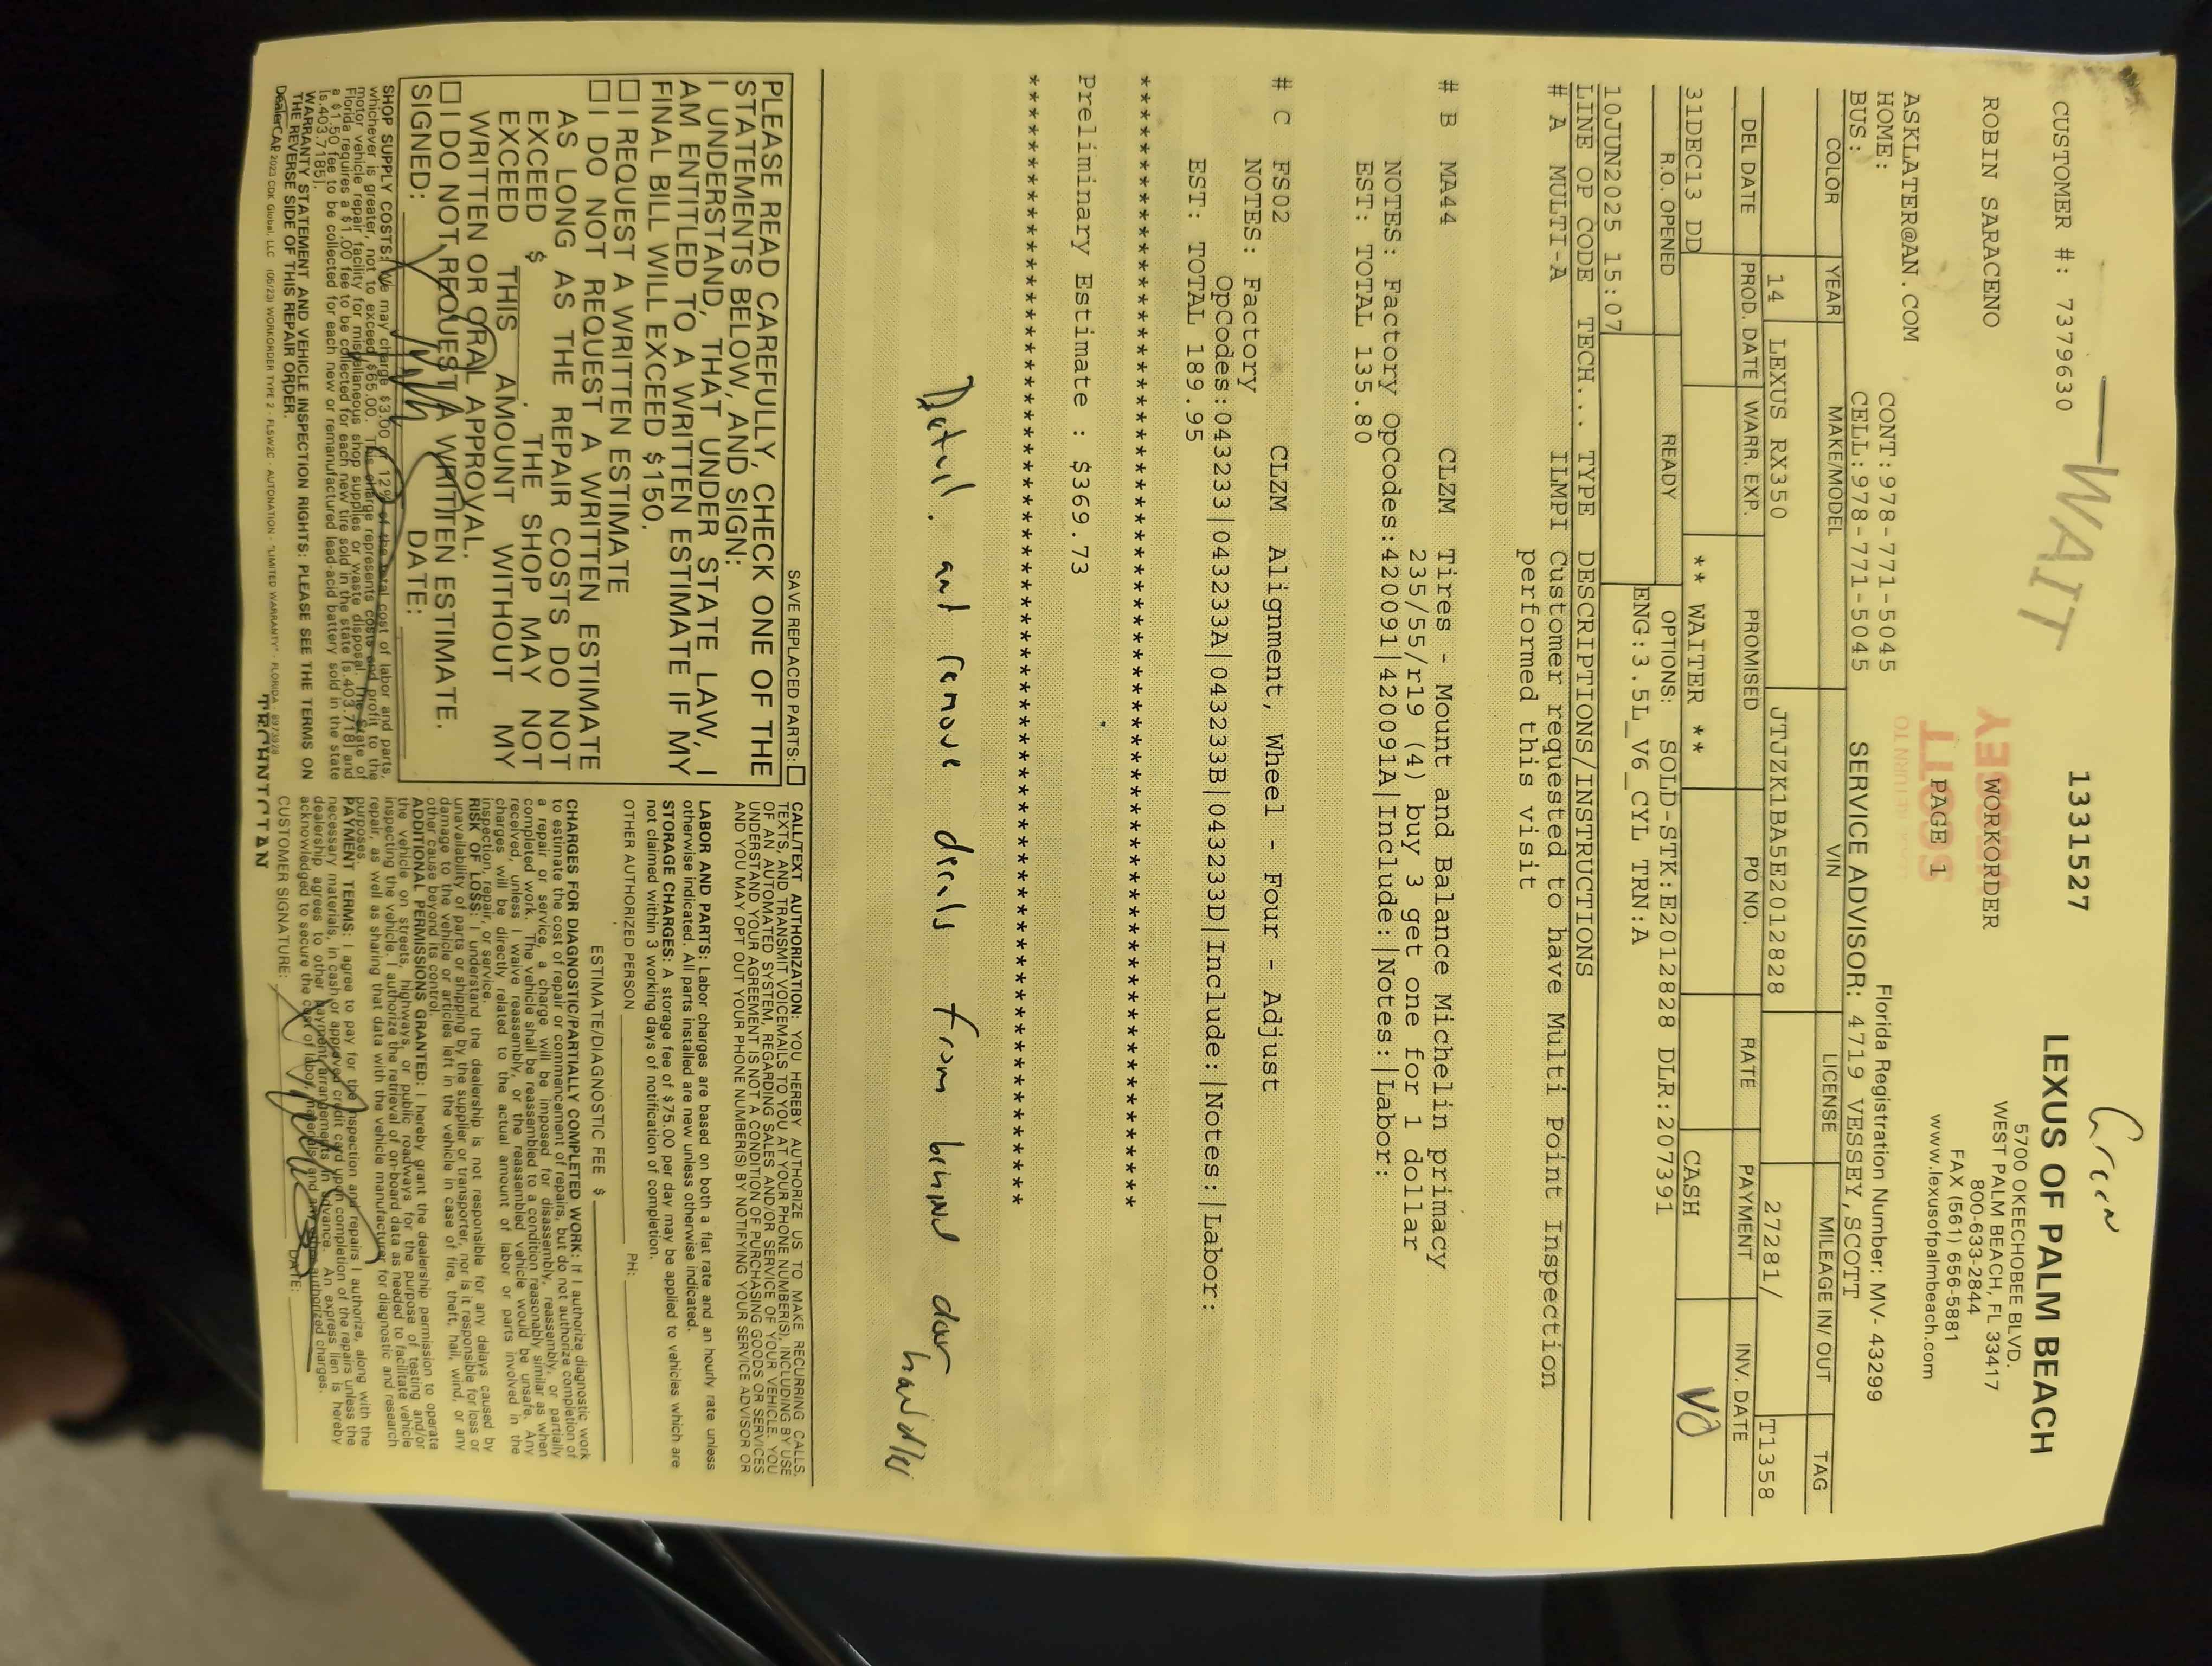 Green
— WAIT
CUSTOMER #: 7379630
1331527
LEXUS OF PALM BEACH
5700 OKEECHOBEE BLVD.
WEST PALM BEACH, FL 33417
800-633-2844
FAX (561) 656-5881
www.lexusofpalmbeach.com
ROBIN SARACENO
WORKORDER
VESSEY
SCOTT
PAGE 1
ASKLATER@AN.COM
HOME: CONT:978-771-5045
BUS: CELL:978-771-5045
Florida Registration Number: MV- 43299
SERVICE ADVISOR: 4719 VESSEY,SCOTT
COLOR YEAR MAKE/MODEL VIN LICENSE MILEAGE IN/ OUT TAG
14 LEXUS RX350 JTJZK1BA5E2012828 27281/ T1358
DEL DATE PROD. DATE WARR. EXP. PROMISED PO NO. RATE PAYMENT INV. DATE
31DEC13 DD ** WAITER ** CASH
R.O. OPENED READY OPTIONS: SOLD-STK:E2012828 DLR:207391
10JUN2025 15:07 ENG:3.5L_V6_CYL TRN:A
LINE OP CODE TECH... TYPE DESCRIPTIONS/INSTRUCTIONS
# A MULTI-A ILMPI Customer requested to have Multi Point Inspection
performed this visit
# B MA44 CLZM Tires - Mount and Balance Michelin primacy
235/55/r19 (4) buy 3 get one for 1 dollar
NOTES: Factory OpCodes:420091|420091A|Include:|Notes:|Labor:
EST: TOTAL 135.80
# C FS02 CLZM Alignment, Wheel - Four - Adjust
NOTES: Factory
OpCodes:043233|043233A|043233B|043233D|Include:|Notes:|Labor:
EST: TOTAL 189.95
Preliminary Estimate : $369.73
Detail. and remove decals from behind door handles
SAVE REPLACED PARTS:
PLEASE READ CAREFULLY, CHECK ONE OF THE
STATEMENTS BELOW, AND SIGN:
I UNDERSTAND, THAT UNDER STATE LAW, I
AM ENTITLED TO A WRITTEN ESTIMATE IF MY
FINAL BILL WILL EXCEED $150.
I REQUEST A WRITTEN ESTIMATE
I DO NOT REQUEST A WRITTEN ESTIMATE
AS LONG AS THE REPAIR COSTS DO NOT
EXCEED $ . THE SHOP MAY NOT
EXCEED THIS AMOUNT WITHOUT MY
WRITTEN OR ORAL APPROVAL.
I DO NOT REQUEST A WRITTEN ESTIMATE.
SIGNED: DATE:
SHOP SUPPLY COSTS: We may charge $3.00 or 12% of the total cost of labor and parts,
whichever is greater, not to exceed $65.00. This charge represents costs and profit to the
motor vehicle repair facility for miscellaneous shop supplies or waste disposal. The State of
Florida requires a $1.00 fee to be collected for each new tire sold in the state [s.403.718] and
a $1.50 fee to be collected for each new or remanufactured lead-acid battery sold in the state
[s.403.7185].
WARRANTY STATEMENT AND VEHICLE INSPECTION RIGHTS: PLEASE SEE THE TERMS ON
THE REVERSE SIDE OF THIS REPAIR ORDER.
CALL/TEXT AUTHORIZATION: YOU HEREBY AUTHORIZE US TO MAKE RECURRING CALLS,
TEXTS, AND TRANSMIT VOICEMAILS TO YOU AT YOUR PHONE NUMBER(S), INCLUDING BY USE
OF AN AUTOMATED SYSTEM, REGARDING SALES AND/OR SERVICE OF YOUR VEHICLE. YOU
UNDERSTAND YOUR AGREEMENT IS NOT A CONDITION OF PURCHASING GOODS OR SERVICES
AND YOU MAY OPT OUT YOUR PHONE NUMBER(S) BY NOTIFYING YOUR SERVICE ADVISOR OR
LABOR AND PARTS: Labor charges are based on both a flat rate and an hourly rate unless
otherwise indicated. All parts installed are new unless otherwise indicated.
STORAGE CHARGES: A storage fee of $75.00 per day may be applied to vehicles which are
not claimed within 3 working days of notification of completion.
OTHER AUTHORIZED PERSON PH:
ESTIMATE/DIAGNOSTIC FEE $
CHARGES FOR DIAGNOSTIC/PARTIALLY COMPLETED WORK: If I authorize diagnostic work
to estimate the cost of repair or commencement of repairs, but do not authorize completion of
a repair or service, a charge will be imposed for disassembly, reassembly, or partially
completed work. The vehicle shall be reassembled to a condition reasonably similar as when
received, unless I waive reassembly, or the reassembled vehicle would be unsafe. Any
charges will be directly related to the actual amount of labor or parts involved in the
inspection, repair, or service.
RISK OF LOSS: I understand the dealership is not responsible for any delays caused by
unavailability of parts or shipping by the supplier or transporter, nor is it responsible for loss or
damage to the vehicle or articles left in the vehicle in case of fire, theft, hail, wind, or any
other cause beyond its control.
ADDITIONAL PERMISSIONS GRANTED: I hereby grant the dealership permission to operate
the vehicle on streets, highways, or public roadways for the purpose of testing and/or
inspecting the vehicle. I authorize the retrieval of on-board data as needed to facilitate vehicle
repair, as well as sharing that data with the vehicle manufacturer for diagnostic and research
purposes.
PAYMENT TERMS: I agree to pay for the inspection and repairs I authorize, along with the
necessary materials, in cash or approved credit card upon completion of the repairs unless the
dealership agrees to other payment arrangements in advance. An express lien is hereby
acknowledged to secure the cost of labor, materials and any other authorized charges.
CUSTOMER SIGNATURE: X DATE:
TECHNICIAN